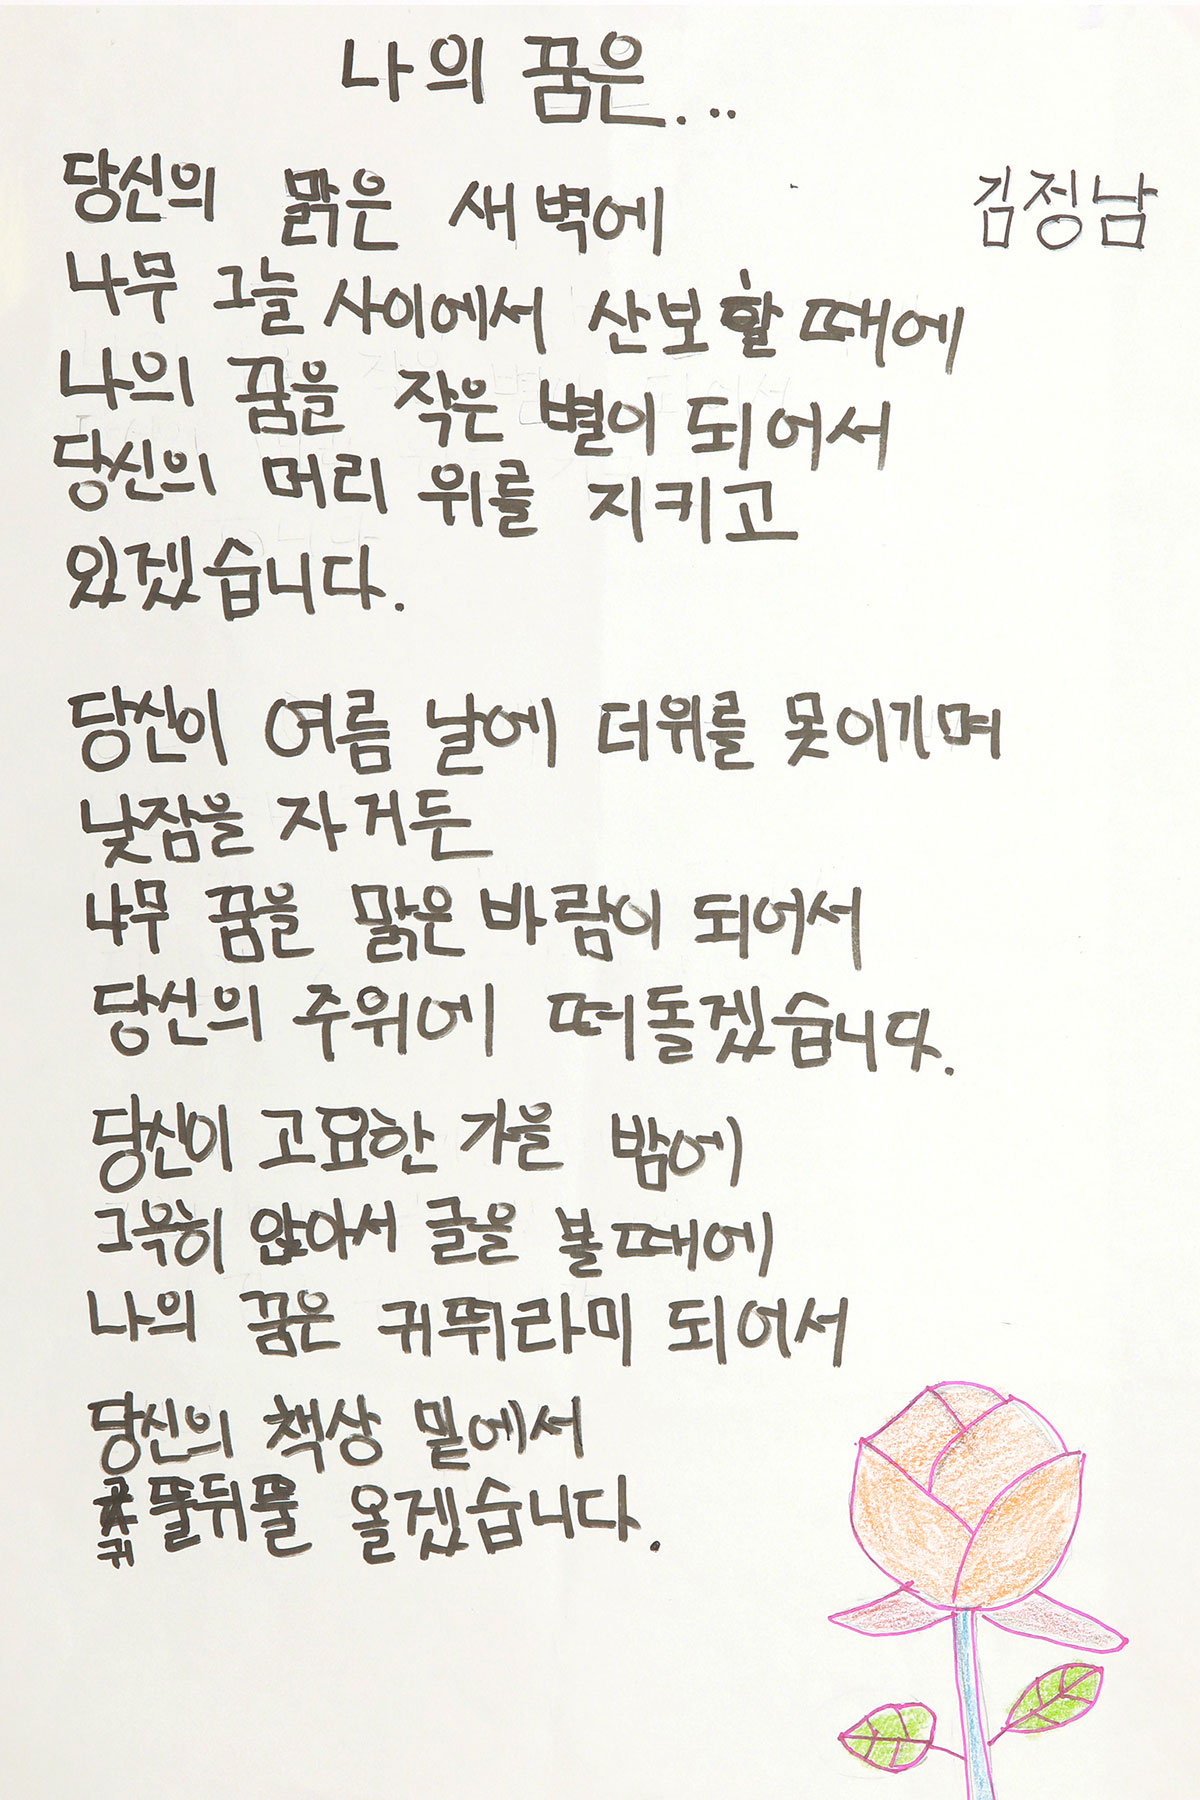 나의 꿈은...
김정남
당신의 맑은 새벽에
나무 그늘 사이에서 산보할 때에
나의 꿈을 작은 별이 되어서
당신의 머리 위를 지키고
있겠습니다.
당신이 여름 날에 더위를 못이기며
낮잠을 자거든
나무 꿈을 맑은 바람이 되어서
당신의 주위에 떠돌겠습니다.
당신이 고요한 가을 밤에
그윽히 앉아서 글을 볼때에
나의 꿈은 귀뚜라미 되어서
당신의 책상 밑에서
귀뚤뒤뚤 올겠습니다.